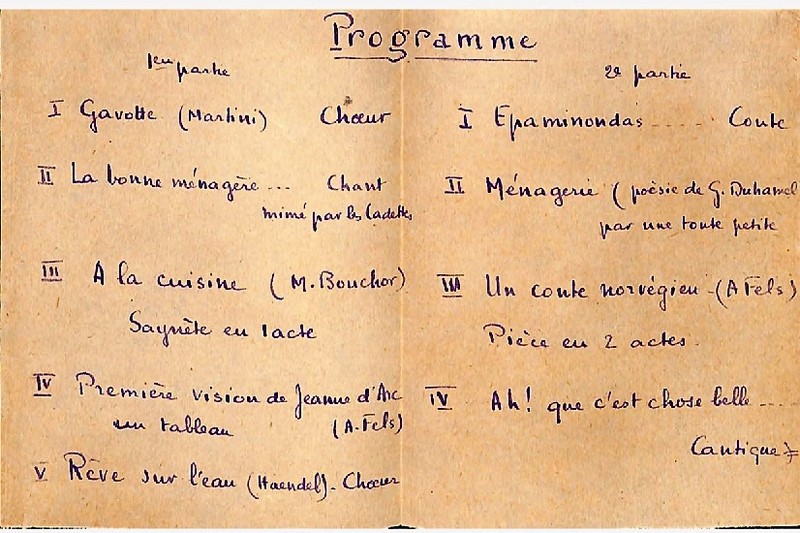 Programme
1ère partie
I Gavotte (Martini) Chœur
II La bonne ménagère ... Chant
mimé par les Cadettes
III A la cuisine (M. Bouchor)
Saynète en 1 acte
IV Première vision de Jeanne d'Arc
un tableau (A. Fels)
V Rêve sur l'eau (Haendel). Chœur
2e partie
I Epaminondas ..... Conte
II Ménagerie (poèsie de G. Duhamel
par une toute petite
III Un conte norvégien - (A Fels)
Pièce en 2 actes.
IV Ah! que c'est chose belle ....
Cantique